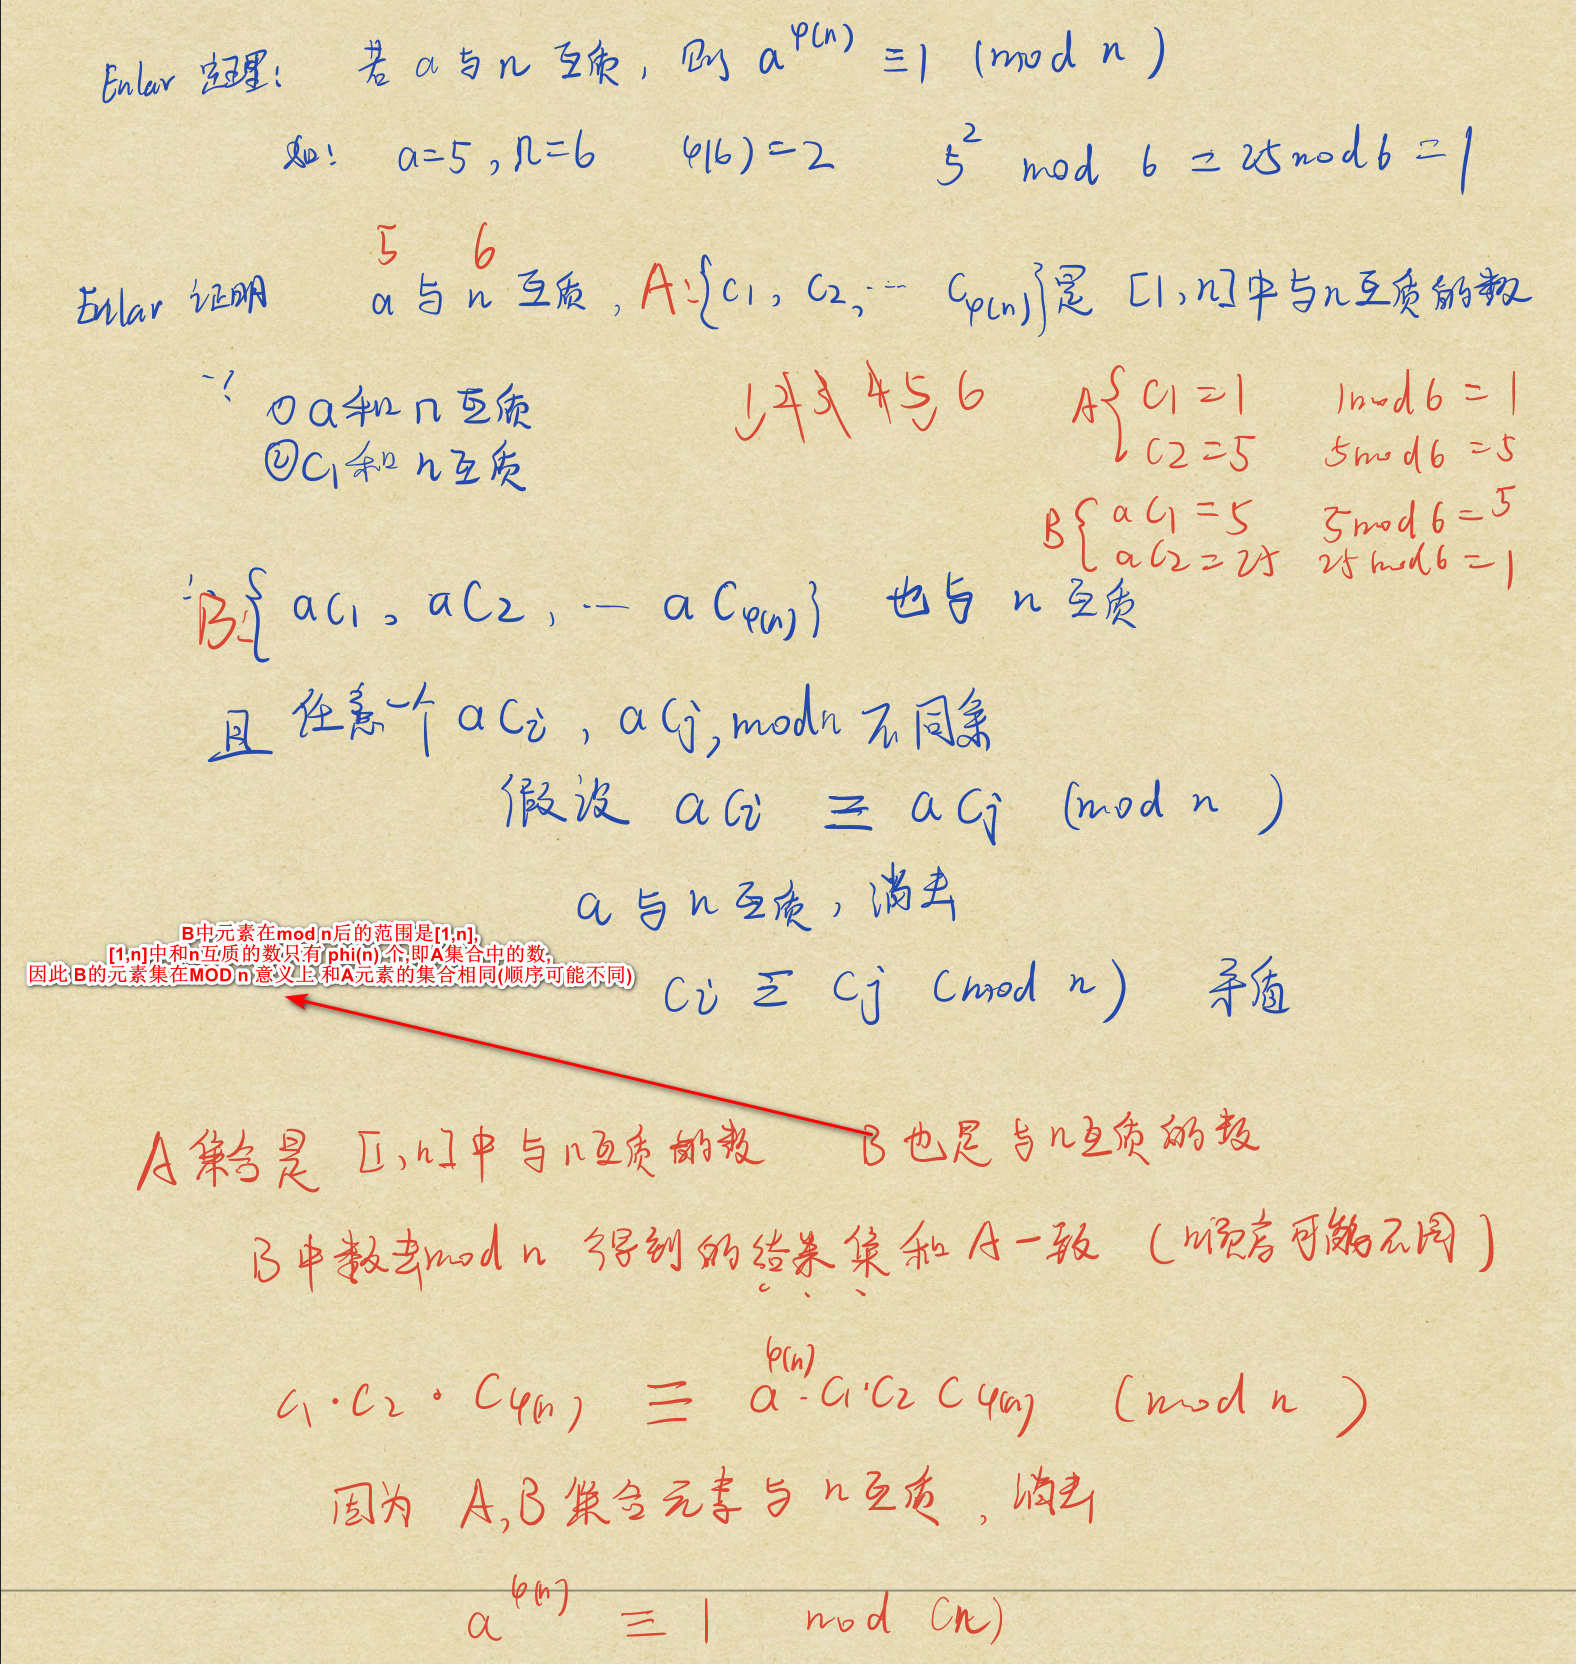 Enlar 定理: 若 a 与 n 互质, 则 a^φ(n) ≡ 1 (mod n)
如: a=5, n=6 φ(6)=2 5^2 mod 6 = 25 mod 6 = 1
5 6
Enlar 证明 a 与 n 互质, A:{C1, C2, … Cφ(n)}是 [1,n]中与n互质的数
∵ ① a和n互质
② C1和n互质
1, 2 3 4 5, 6
A{ C1=1 1mod6=1
C2=5 5mod6=5
B{ aC1=5 5mod6=5
aC2=25 25mod6=1
∴ B:{ aC1, aC2, … aCφ(n)} 也与 n 互质
且 任意一个 aCi, aCj, mod n 不同余
假设 aCi ≡ aCj (mod n)
a与n互质, 消去
B中元素在mod n后的范围是[1,n],
[1,n]中和n互质的数只有 phi(n) 个,即A集合中的数,
因此 B的元素集在MOD n 意义上 和A元素的集合相同(顺序可能不同)
Ci ≡ Cj (mod n) 矛盾
A集合是 [1,n]中与n互质的数 B也是与n互质的数
B中数去mod n 得到的结果集和A一致 (顺序可能不同)
C1·C2·Cφ(n) ≡ a^φ(n)·C1·C2 Cφ(n) (mod n)
因为 A,B集合元素与n互质, 消去
a^φ(n) ≡ 1 mod (n)